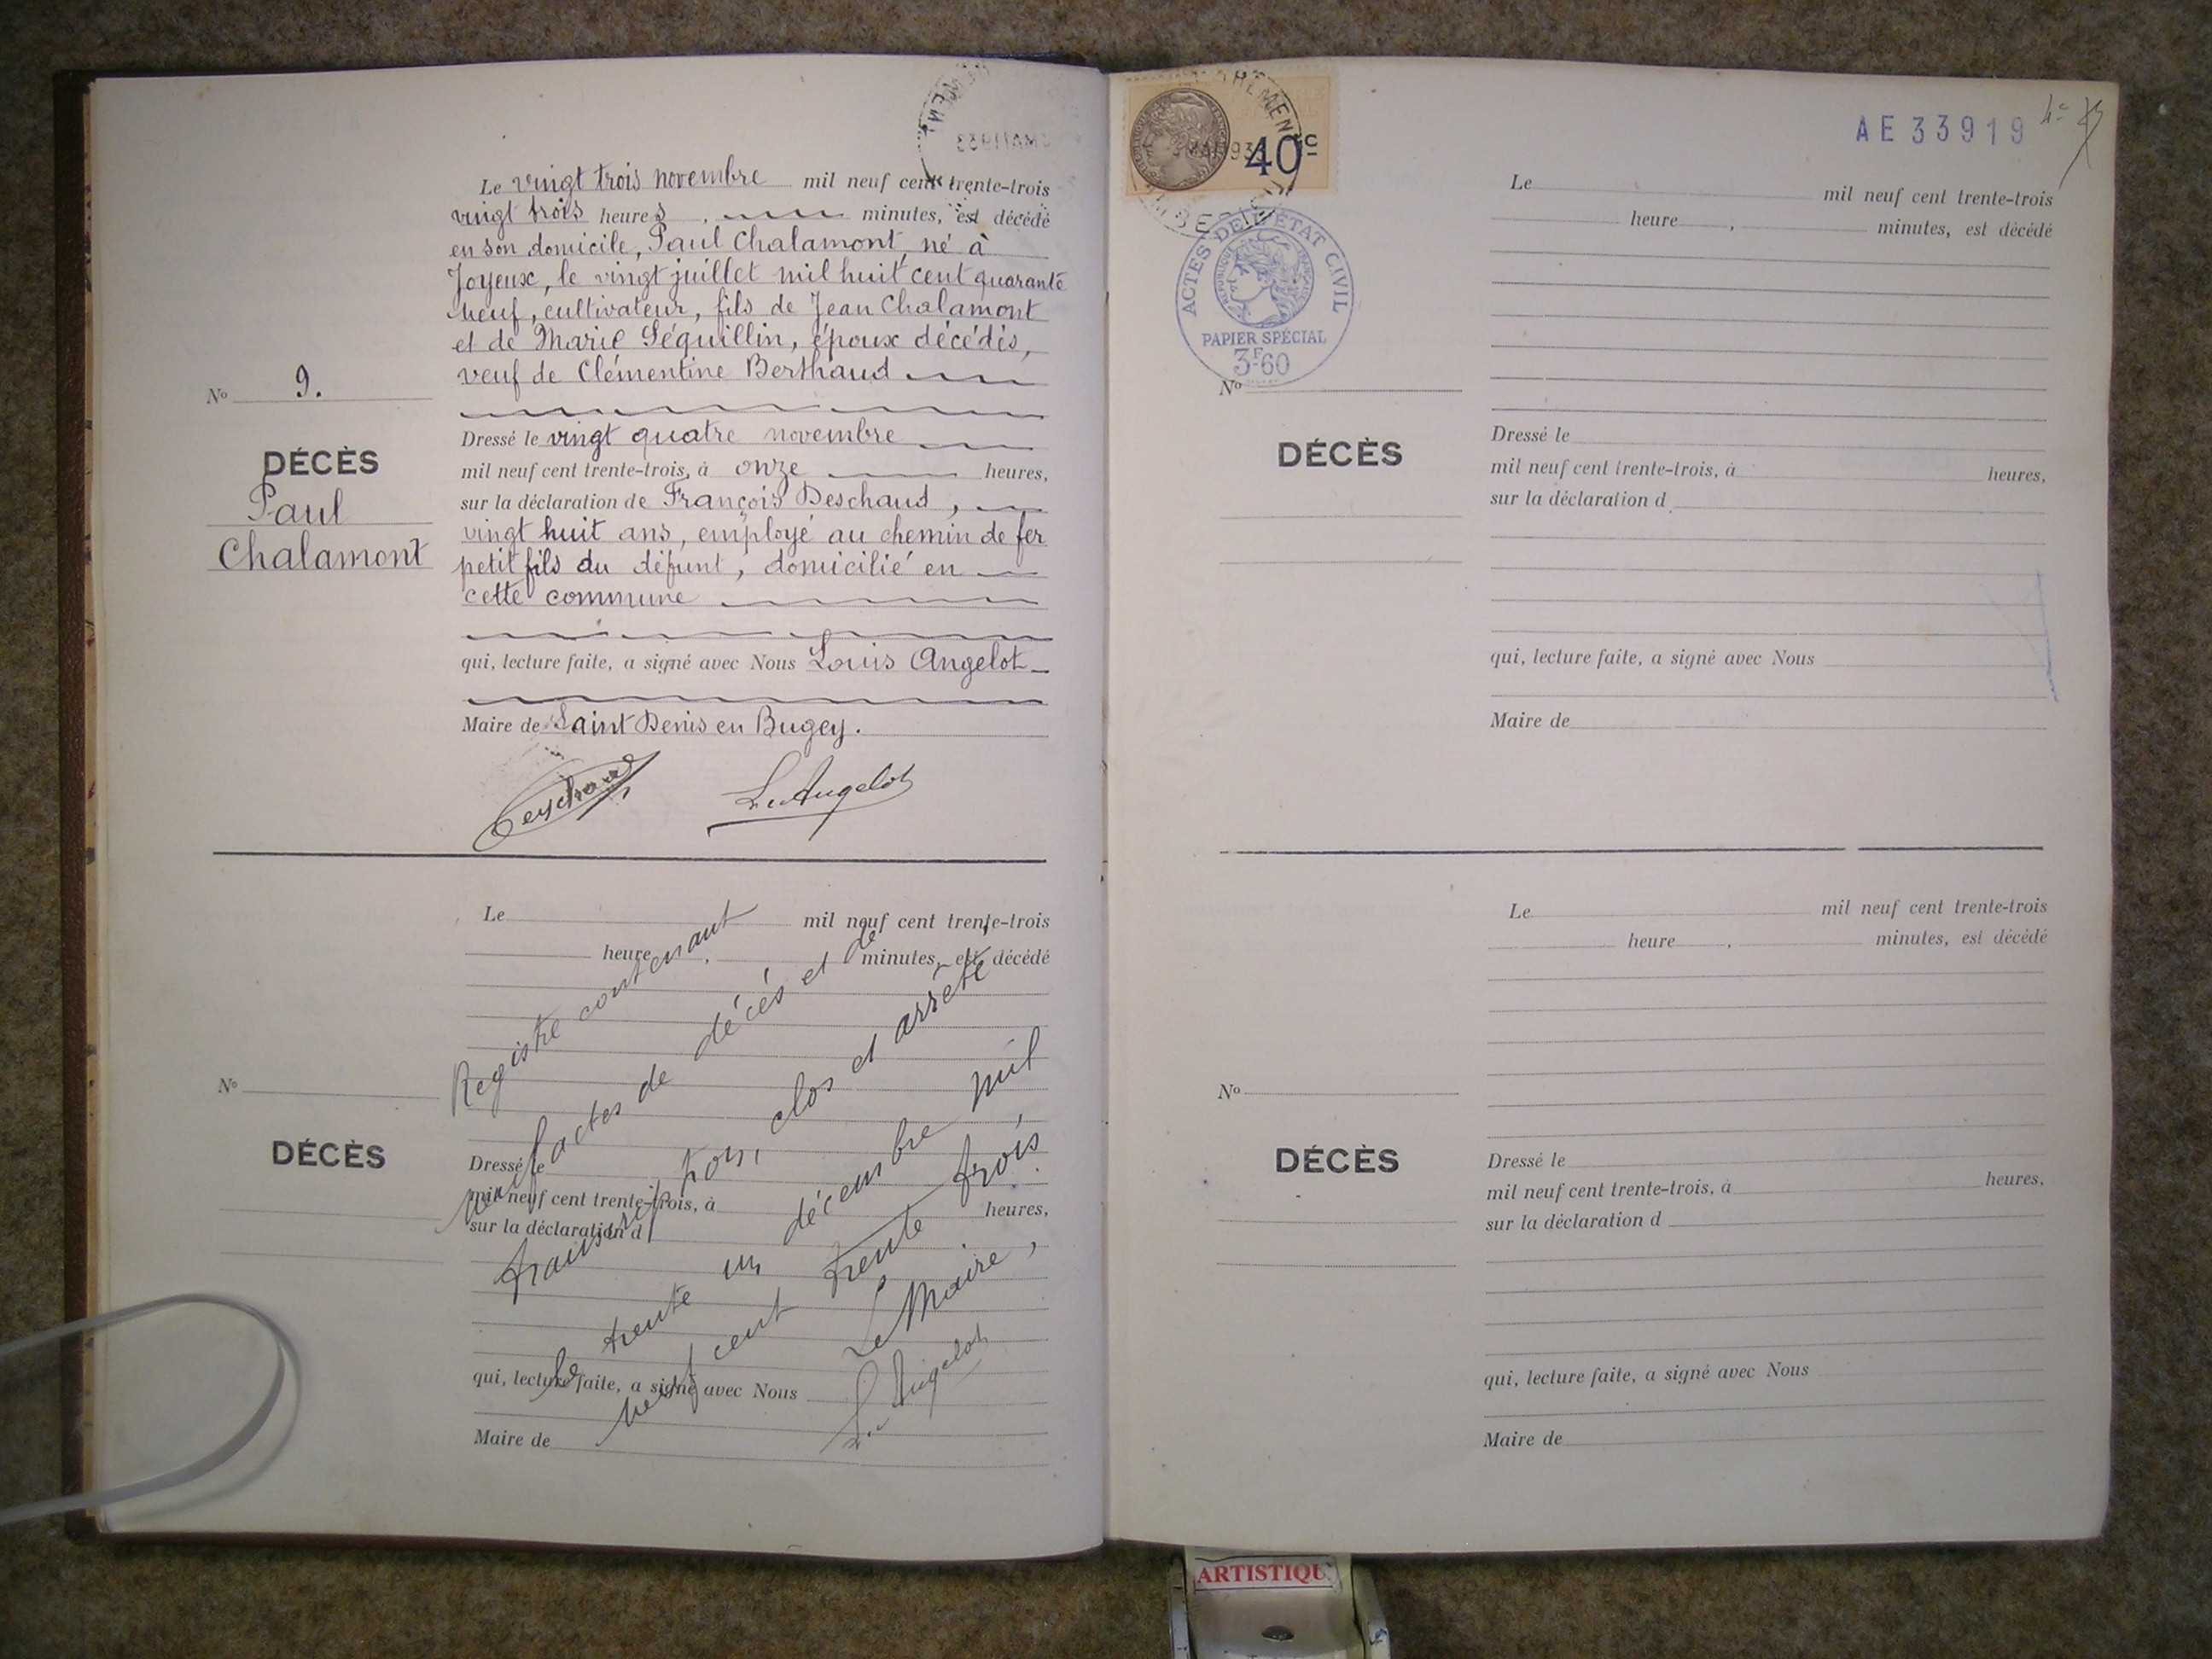 Le vingt trois novembre mil neuf cent trente-trois
vingt trois heures, minutes, est décédé
en son domicile, Paul Chalamont, né à
Joyeux, le vingt juillet mil huit cent quarante
neuf, cultivateur, fils de Jean Chalamont
et de Marie Séquillin, époux décédés,
veuf de Clémentine Berthaud
No 9.
DÉCÈS
Paul
Chalamont
Dressé le vingt quatre novembre
mil neuf cent trente-trois, à onze heures,
sur la déclaration de François Deschaud,
vingt huit ans, employé au chemin de fer
petit fils du défunt, domicilié en
cette commune
qui, lecture faite, a signé avec Nous Louis Angelot
Maire de Saint Denis en Bugey.
Deschaud
L. Angelot
Le mil neuf cent trente-trois
heure, minutes, est décédé
No
DÉCÈS
Dressé le
mil neuf cent trente-trois, à heures,
sur la déclaration d
qui, lecture faite, a signé avec Nous
Maire de
Registre contenant
neuf actes de décés et de
transcription, clos et arrêté
le trente un décembre mil
neuf cent trente trois
Le Maire,
L. Angelot
40c
ACTES DE L'ÉTAT CIVIL
RÉPUBLIQUE FRANÇAISE
PAPIER SPÉCIAL
3F60
AE 33919
Le mil neuf cent trente-trois
heure, minutes, est décédé
No
DÉCÈS
Dressé le
mil neuf cent trente-trois, à heures,
sur la déclaration d
qui, lecture faite, a signé avec Nous
Maire de
Le mil neuf cent trente-trois
heure, minutes, est décédé
No
DÉCÈS
Dressé le
mil neuf cent trente-trois, à heures,
sur la déclaration d
qui, lecture faite, a signé avec Nous
Maire de
ARTISTIQU